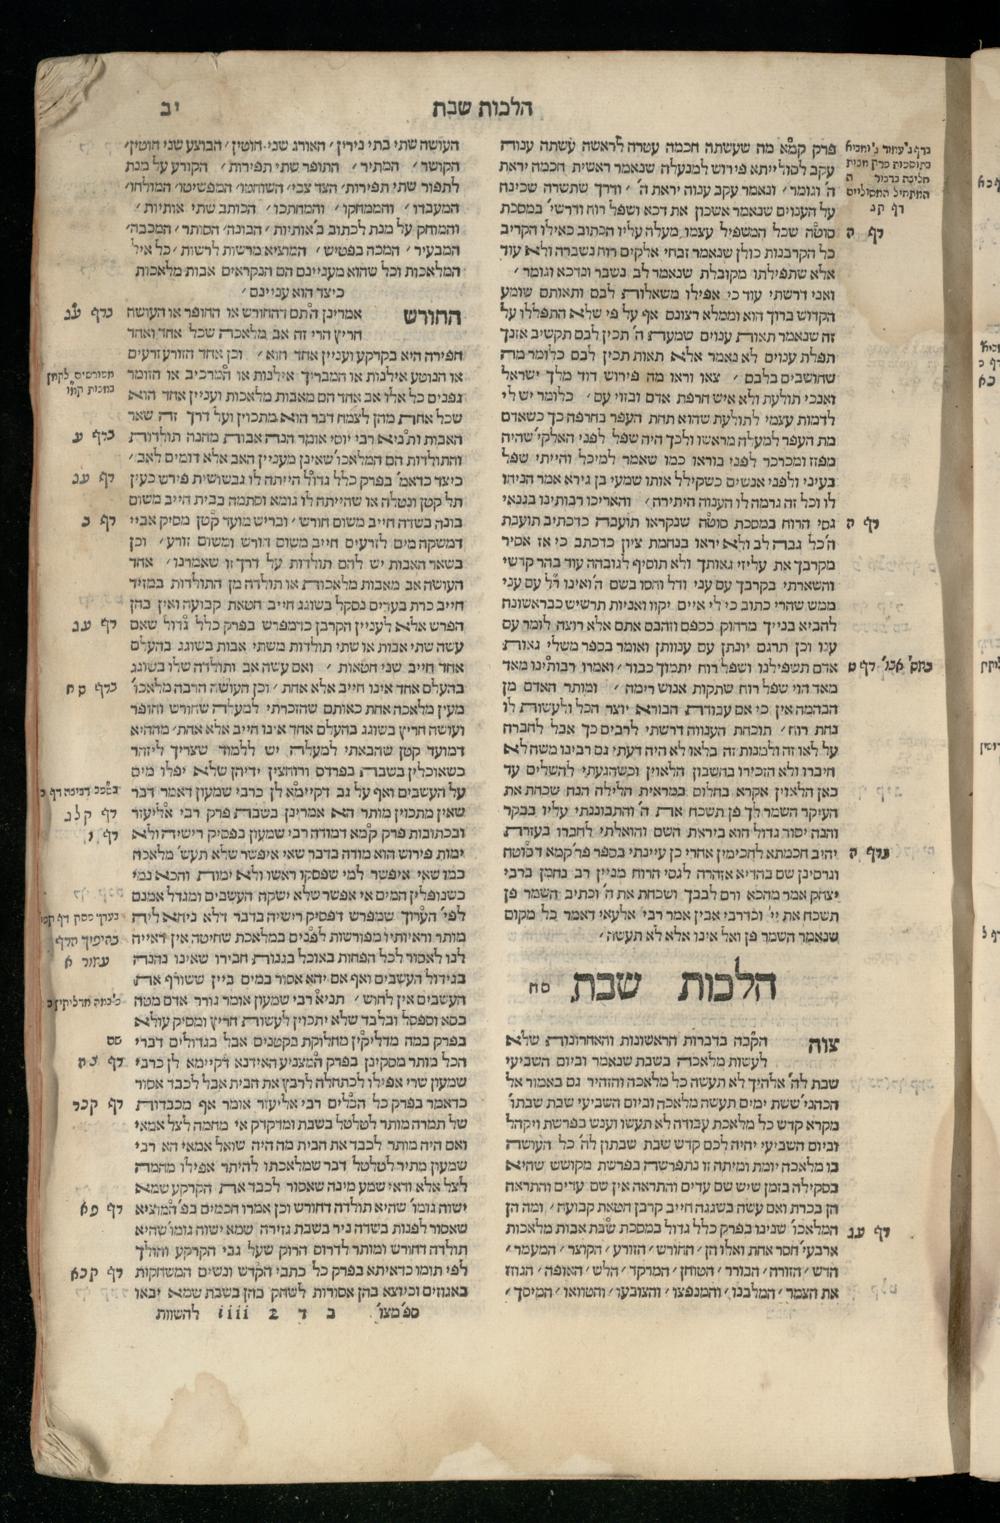 הלכות שבת
יב
פרק קמא מה שעשתה חכמה עטרה לראשה עשתה ענוה
עקב לסולייתא פירוש למנעלה שנאמר ראשית חכמה יראת
ה' וגומר' ונאמר עקב ענוה יראת ה' ודרך שתשרה שכינה
על הענוים שנאמר אשכון את דכא ושפל רוח ודרשי' במסכת
סוטה שכל המשפיל עצמו מעלה עליו הכתוב כאילו הקריב
כל הקרבנות כולן שנאמר זבחי אלקים רוח נשברה ולא עוד
אלא שתפילתו מקובלת שנאמר לב נשבר ונדכא וגומר'
ואני דרשתי עוד כי אפילו משאלות לבם ותאותם שומע
הקדוש ברוך הוא וממלא רצונם אף על פי שלא התפללו על
זה שנאמר תאות ענוים שמעת ה' תכין לבם תקשיב אזנך
תפלת ענוים לא נאמר אלא תאות תכין לבם כלומר מה
שחושבים בלבם' צאו וראו מה פירוש דוד מלך ישראל
ואנכי תולעת ולא איש חרפת אדם ובזוי עם' כלומר יש לי
לדמות עצמי לתולעת שהוא תחת העפר בחרפה כך כשאדם
מת העפר למעלה מראשו ולכך היה שפל לפני האלקי' שהיה
מפזז ומכרכר לפני בוראו כמו שאמר למיכל והייתי שפל
בעיני ולפני אנשים כשקילל אותו שמעי בן גירא אמר הניחו
לו וכל זה גרמה לו הענוה היתירה' והאריכו רבותינו בגנאי
גסי הרוח במסכת סוטה שנקראו תועבה כדכתיב תועבת
ה' כל גבה לב ולא יראו בנחמת ציון כדכתב כי אז אסיר
מקרבך את עליזי גאותך ולא תוסיף לגובהה עוד בהר קדשי
והשארתי בקרבך עם עני ודל וחסו בשם ה' ואינו דל עם עני
ממש שהרי כתוב כי לי איים יקוו ואניות תרשיש כבראשונה
להביא בנייך מרחוק כספם וזהבם אתם אלא רוצה לומר עם
ענו וכן תרגם יונתן עם עוותן ואומר בספר משלי גאות
אדם תשפילנו ושפל רוח יתמוך כבוד' ואמרו רבותינו מאד
מאד הוי שפל רוח שתקות אנוש רימה' ומותר האדם מן
הבהמה אין כי אם עבודת הבורא יוצר הכל ולעשות לו
נחת רוח' תוכחת הענווה דרשתי לרבים כך אבל לחברה
על לאו זה ולמנות זה בלאו לא היה דעתי גם רבינו משה לא
חיברו ולא הזכירו בחשבון הלאוין וכשהגעתי להשלים עד
כאן הלאוין אקרא בחלום במראית הלילה הנה שכחת את
העיקר השמר לך פן תשכח את ה' והתבוננתי עליו בבקר
והנה יסוד גדול הוא ביראת השם והואלתי לחברו בעזרת
יהיב חכמתא לחכימין אחרי כן עיינתי בספר פר' קמא דסוטה
וגרסינן שם בהדיא אזהרה לגסי הרוח מניין רב נחמן ברבי
יצחק אמר מהכא ורם לבבך ושכחת את ה' וכתיב השמר פן
תשכח את יי' וכדרבי אבין אמר רבי אלעאי דאמר כל מקום
שנאמר השמר פן ואל אינו אלא לא תעשה'
הלכות שבת סח
צוה הקבה בדברות הראשונות והאחרונות שלא
לעשות מלאכה בשבת שנאמר וביום השביעי
שבת לה' אלהיך לא תעשה כל מלאכה והזהיר גם באמור אל
הכהני' ששת ימים תעשה מלאכה וביום השביעי שבת שבתו'
מקרא קדש כל מלאכת עבודה לא תעשו וענש בפרשת ויקהל
וביום השביעי יהיה לכם קדש שבת שבתון לה' כל העושה
בו מלאכה יומת ומיתה זו נתפרשה בפרשת מקושש שהיא
בסקילה בזמן שיש שם עדים והתראה אין שם עדים והתראה
הן בכרת ואם עשה בשגגה חייב קרבן חטאת קבועה' ומה הן
המלאכו' שנינו בפרק כלל גדול במסכת שבת אבות מלאכות
ארבעי' חסר אחת ואלו הן' החורש' הזורע' הקוצר' המעמר'
הדש' הזורה' הבורר' הטוחן' המרקד' הלש' האופה' הגוזז
את הצמר' המלבנו' והמנפצו' והצובעו' והטוואו' המיסך'
דף ה
דף ה
בתוס' אבו' דף ט
בדף ה
דף עג
העושה שתי בתי נירין' האורג שני חוטין' הבוצע שני חוטין'
הקושר' המתיר' התופר שתי תפירות' הקורע על מנת
לתפור שתי תפירות' הצד צבי' השוחטו' המפשיטו' המולחו'
המעבדו' והממחקו' והמחתכו' הכותב שתי אותיות'
והמוחק על מנת לכתוב ב' אותיות' הבונה' הסותר' המכבה'
המבעיר' המכה בפטיש' המוציא מרשות לרשות' כל אילו
המלאכות וכל שהוא מעניינם הם הנקראים אבות מלאכות
כיצד הוא עניינם'
החורש אמרינן התם דהחורש או החופר או העושה
חריץ הרי זה אב מלאכה שכל אחד ואחד
חפירה היא בקרקע ועניין אחד הוא' וכן אחד הזורע זרעים
או הנוטע אילנות או המבריך אילנות או המרכיב או הזומר
גפנים כל אלו אב אחד הם מאבות מלאכות ועניין אחד הוא
שכל אחת מהן לצמח דבר הוא מתכוין ועל דרך זה שאר
האבות ותניא רבי יוסי אומר הנה אבות מהנה תולדות
והתולדות הם המלאכו' שאינן מעניין האב אלא דומים לאב'
כיצד כדאמ' בפרק כלל גדול הייתה לו גבשושית פירש כעין
תל קטן ונטלה או שהייתה לו גומא וסתמה בבית חייב משום
בונה בשדה חייב משום חורש' ובריש מועד קטן מסיק אביי
דמשקה מים לזרעים חייב משום חורש ומשום זורע' וכן
בשאר האבות יש להם תולדות על דרך זו שאמרנו' אחד
העושה אב מאבות מלאכות או תולדה מן התולדות במזיד
חייב כרת בעדים נסקל בשוגג חייב חטאת קבועה ואין בהן
הפרש אלא לעניין הקרבן כדמפרש בפרק כלל גדול שאם
עשה שתי אבות או שתי תולדות משתי אבות בשוגג בהעלם
אחד חייב שני חטאות' ואם עשה אב ותולדה שלו בשוגג
בהעלם אחד אינו חייב אלא אחת' וכן העושה הרבה מלאכו'
מעין מלאכה אחת כאותם שהזכרתי למעלה שחורש וחופר
ועושה חריץ בשוגג בהעלם אחד אינו חייב אלא אחת' מההיא
דמועד קטן שהבאתי למעלה יש ללמוד שצריך ליזהר
כשאוכלין בשבת בפרדס ורוחצין ידיהן שלא יפלו מים
על העשבים ואף על גב דקיימא לן כרבי שמעון דאמר דבר
שאין מתכוין מותר הא אמרינן בשבת פרק רבי אליעזר
ובכתובות פרק קמא דמודה רבי שמעון בפסיק רישיה ולא
ימות פירוש הוא מודה בדבר שאי איפשר שלא תעש' מלאכה
כמו שאי איפשר למי שפסקו ראשו ולא ימות והכא נמי
כשנופלין המים אי אפשר שלא ישקה העשבים ומגדל אמנם
לפי' הערוך שמפרש דפסיק רישיה בדבר דלא ניחא ליה
מותר וראיותיו מפורשות לפנים במלאכת שחיטה אין ראייה
לנו לאסור לכל הפחות באוכל בגנות חבירו שאינו נהנה
בגידול העשבים ואף אם יהא אסור במים ביין ששורף את
העשבים אין לחוש' תניא רבי שמעון אומר גורר אדם מטה
כסא וספסל ובלבד שלא יתכוין לעשות חריץ ומסיק עולא
בפרק במה מדליקין מחלוקת בקטנים אבל בגדולים דברי
הכל מותר מסקינן בפרק המצניע האידנא דקיימא לן כרבי
שמעון שרי אפילו לכתחלה לרבץ את הבית אבל לכבד אסור
כדאמר בפרק כל הכלים רבי אליעזר אומר אף מכבדות
של תמרה מותר לטלטל בשבת ומדקדק אי מחמה לצל אמאי
ואם היה מותר לכבד את הבית מה היה שואל אמאי הא רבי
שמעון מתיר לטלטל דבר שמלאכתו להיתר אפילו מחמה
לצל אלא ודאי שמע מינה שאסור לכבד את הקרקע שמא
ישוה גומו' שהיא תולדה דחורש וכן אמרו חכמים בפ' המוציא
שאסור לפנות בשדה ניר בשבת גזירה שמא ישוה גומו' שהיא
תולדה דחורש ומותר לדרוס הרוק שעל גבי הקרקע והולך
לפי תומו כדאיתא בפרק כל כתבי הקדש ונשים המשחקות
באגוזים וכיוצא בהן אסורות לשחק בהן בשבת שמא יבאו
ספ' מצו' ב ד 2 iiii להשוות
בדף עג
בדף ע
דף עג
דף ב
דף עג
בדף סח
דף קלג
דף ו
שם
דף צה
דף קכד
דף פא
דף קכא